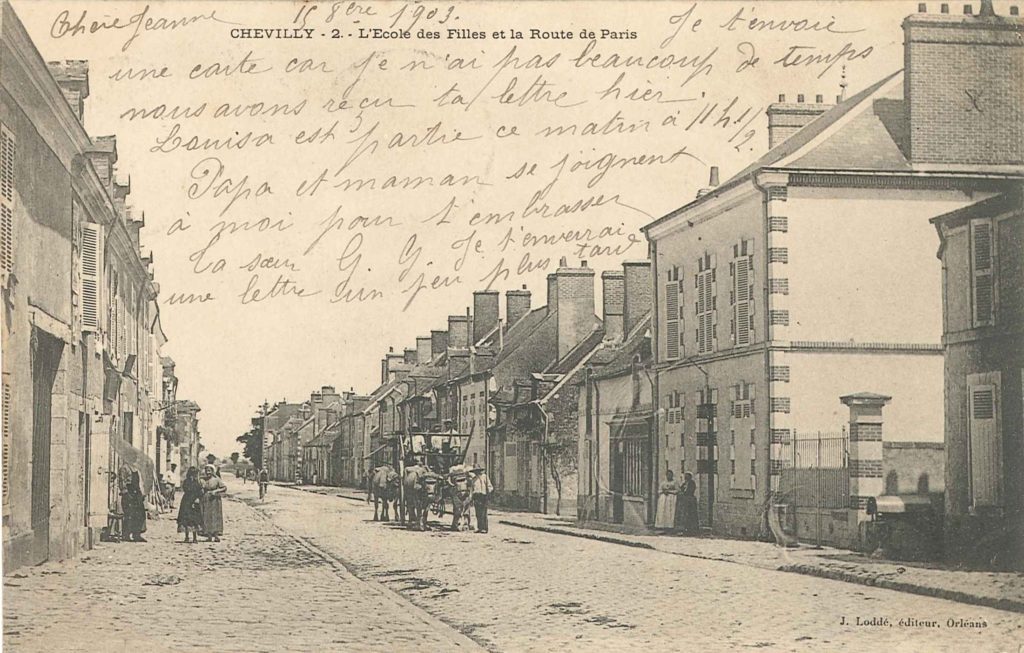 Chère Jeanne 15 8ère 1903.
CHEVILLY - 2. - L'Ecole des Filles et la Route de Paris
Je t'envoie
une carte car je n'ai pas beaucoup de temps
nous avons reçu ta lettre hier.
Louisa est partie ce matin à 11h 1/2.
Papa et maman se joignent
à moi pour t'embrasser
Ta sœur G. G. Je t'enverrai
une lettre un peu plus tard
J. Loddé, éditeur, Orléans